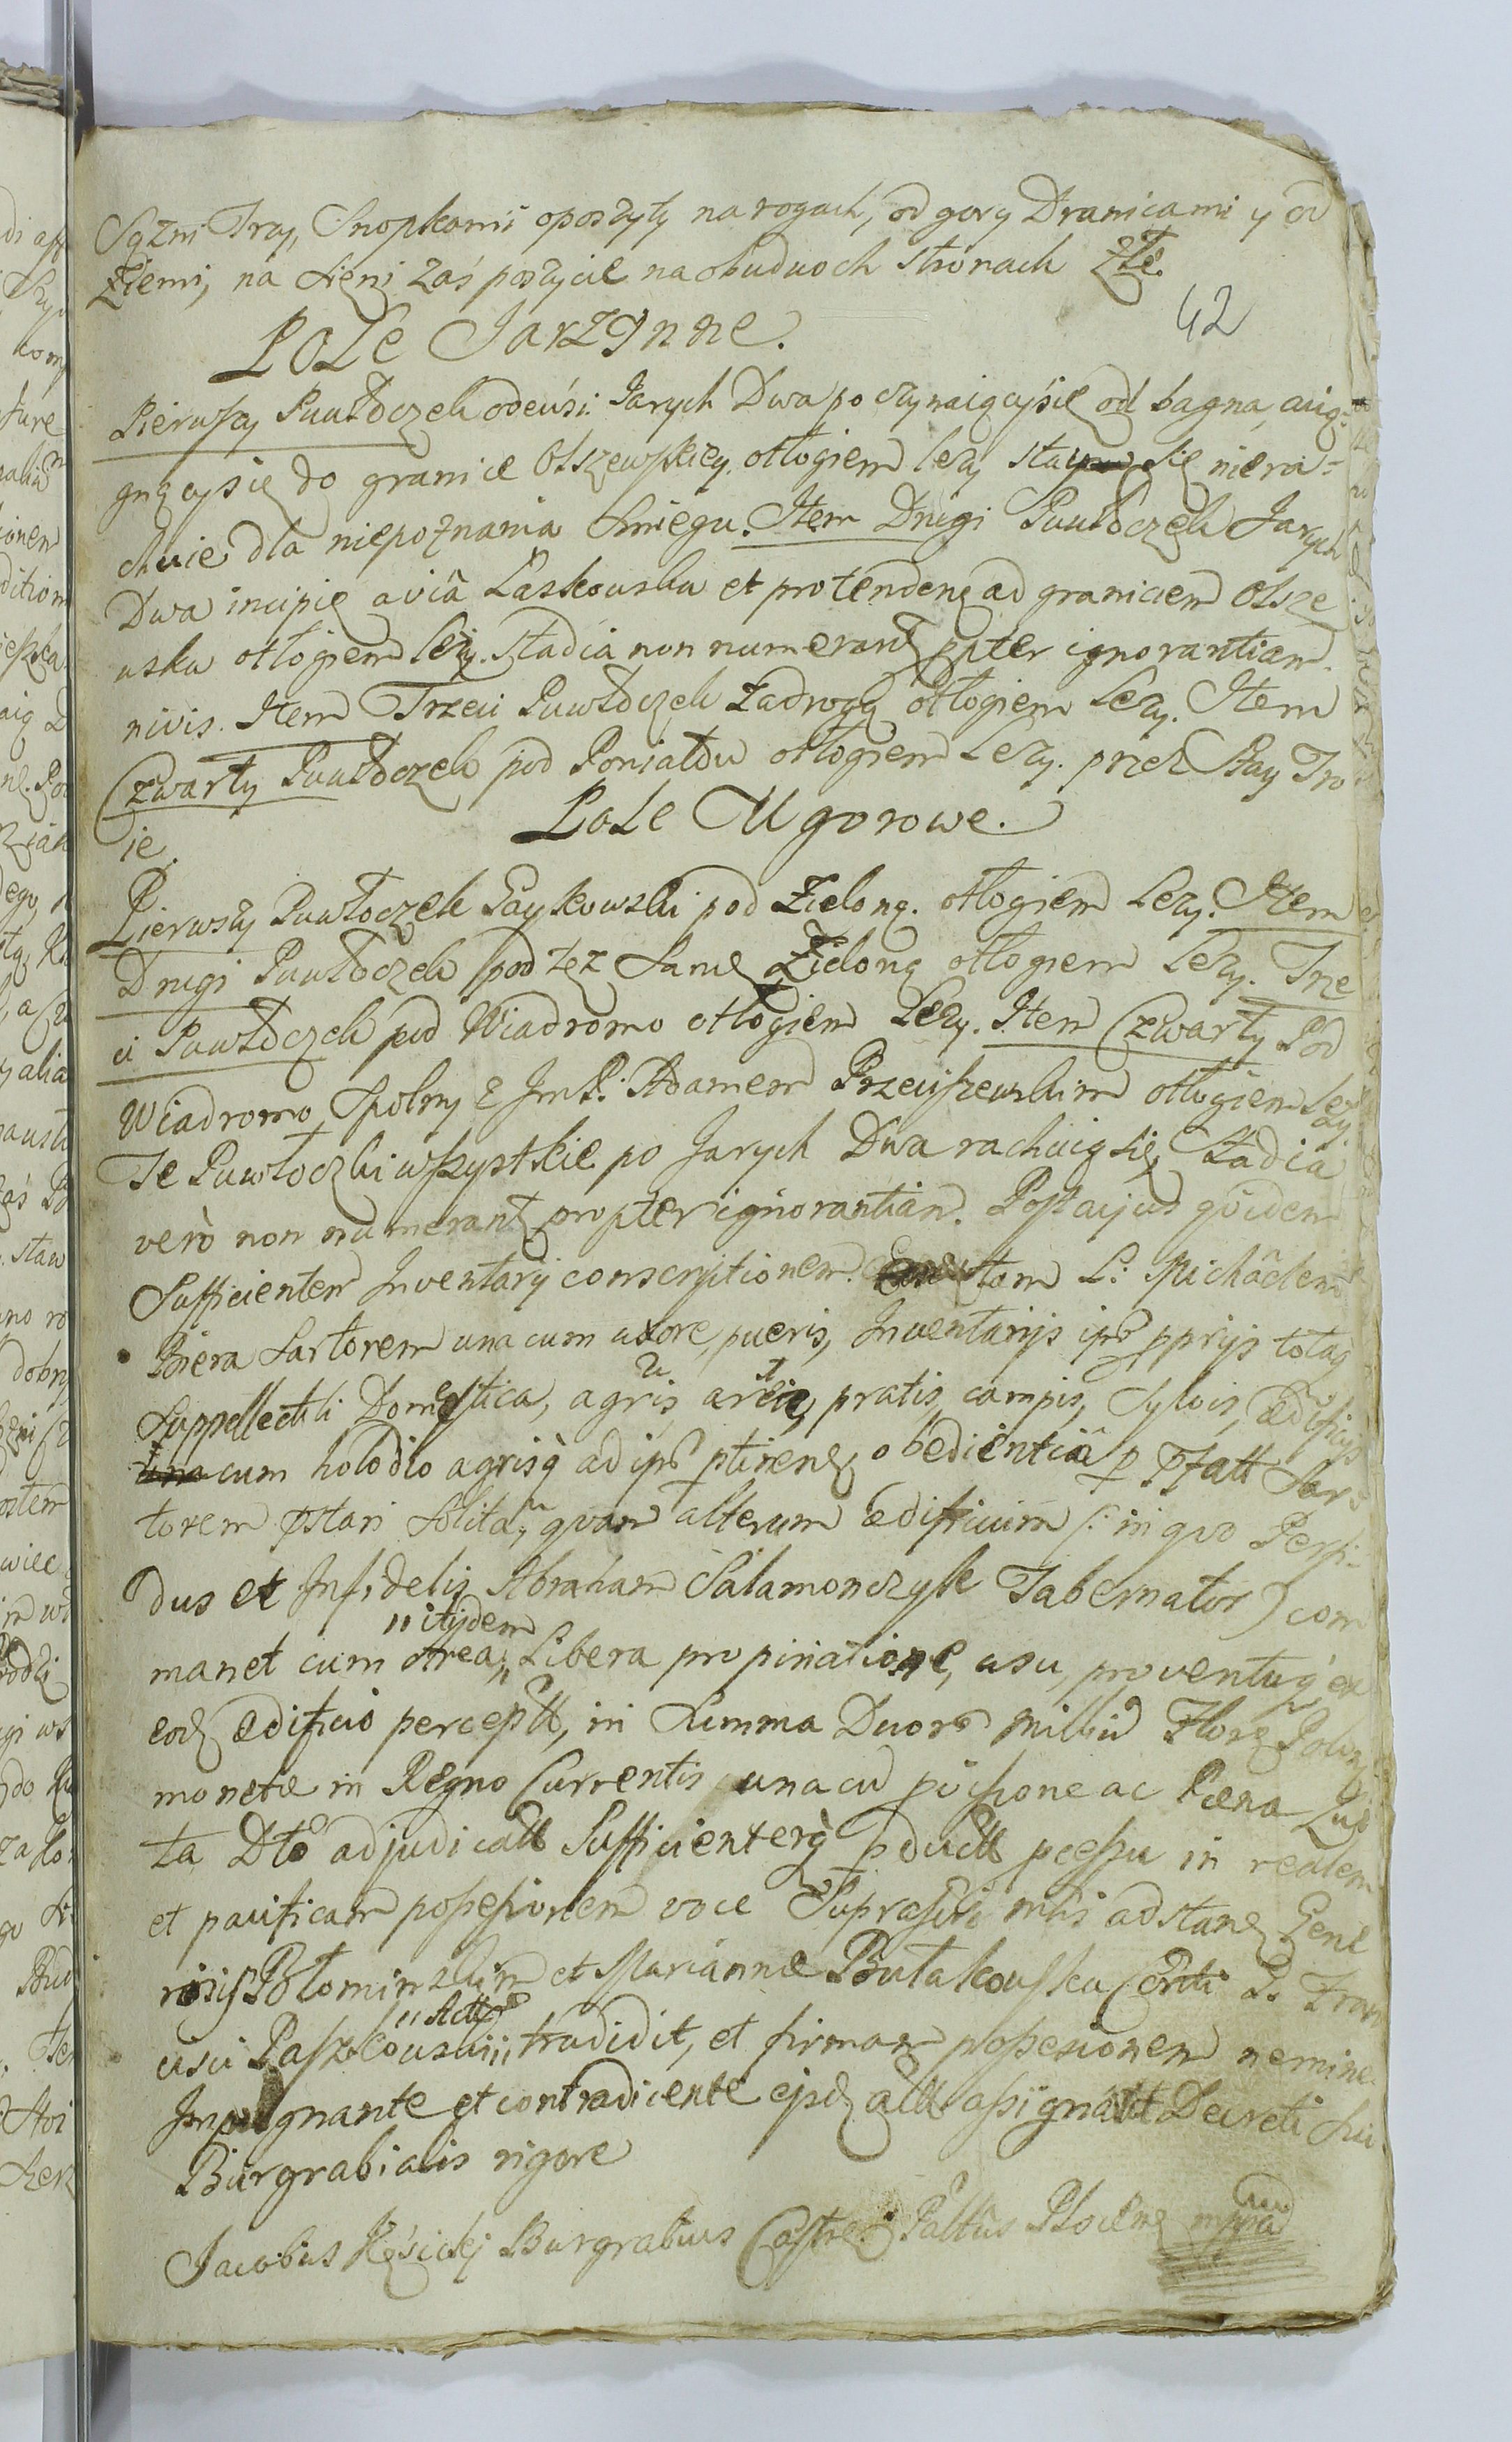 Sązni Trzy, Snopkami oposzyty na rogach, od gory Dranicami y od
Ziemi, na Sieni zaś poszycie na obudwoch stronach złe.
42
Pole Jarzynne.
Pierwszy Puwłoczek Jarych Dwa poczynaiący się od bagna, ciąg-
gnący się do granice Olszewskiey, otłogiem leży się niera-
chuie dla niepoznania Sniegu. Item Drugi Puwłoczek Jarych
Dwa incipię a via Laskouska et protendenę ad graniciem Olsze
uska otłogiem leży. Stadia non numerant ignorantiam
nivis. Item Trzeci Puwłoczek za drogą otłogiem leży. Item
Czwarty Puwłoczek pod Poniatdu otłogiem leży. przez Stay Tro
ie.
Pole Ugorowe.
Pierwszy Puwłoczek Paykowski pod Zieloną. otłogiem leży. Item
Drugi Puwłoczek pod tęż Samę Zieloną otłogiem leży. Trze
ci Puwłoczek pod Wiadromo otłogiem leży. Item Czwarty Pod
Wiadromo Spolny z Jm P: Adamem Przeciszewskim otłogiem leży.
Te Puwłoczki wszystkie po Jarych Dwa rachuią się, Stadia
verò non numerant propter ignorantiam. Post cujus quidem
Sufficientem Inventarij conscriptionem. tam L: Michaëlem
Biera Sartorem una cum uxore, pueris, Inventarijs ipo pprijs totaq
Suppellectili Domestica, agris pratis, campis, Sylvis, ædificijs
cum holodio agrisq ad ipo ptinenę obedientiâ p Sar
torem pstari Solita, quam alterum ædificium (: in quo Perfi-
dus et Infidelis Abraham Salamonczyk Tabernator) com
manet cum area, "itidem" Libera propinatione, usu, proventuq ex
eod ædificio percept, in Summa Duor Milliu Flor Polon
monetæ in Regno Currentis una cu ac Pæna
ta Dto adjudicatt Sufficienterq pductt pcessu in realem
et pacificam possessionem voce Supra mtis adstanę Gene
rosis Potominskim et Mariannæ Butakouska P. Fran
cisci Paszkouski "Act" tradidit, et firmam possessionem nemine
Impugnante et contradicente ejusd assignatt Decreti sui
Burgrabialis rigore
Jacobus Kęsicki Burgrabius Castren Pallus Plocenę mppria